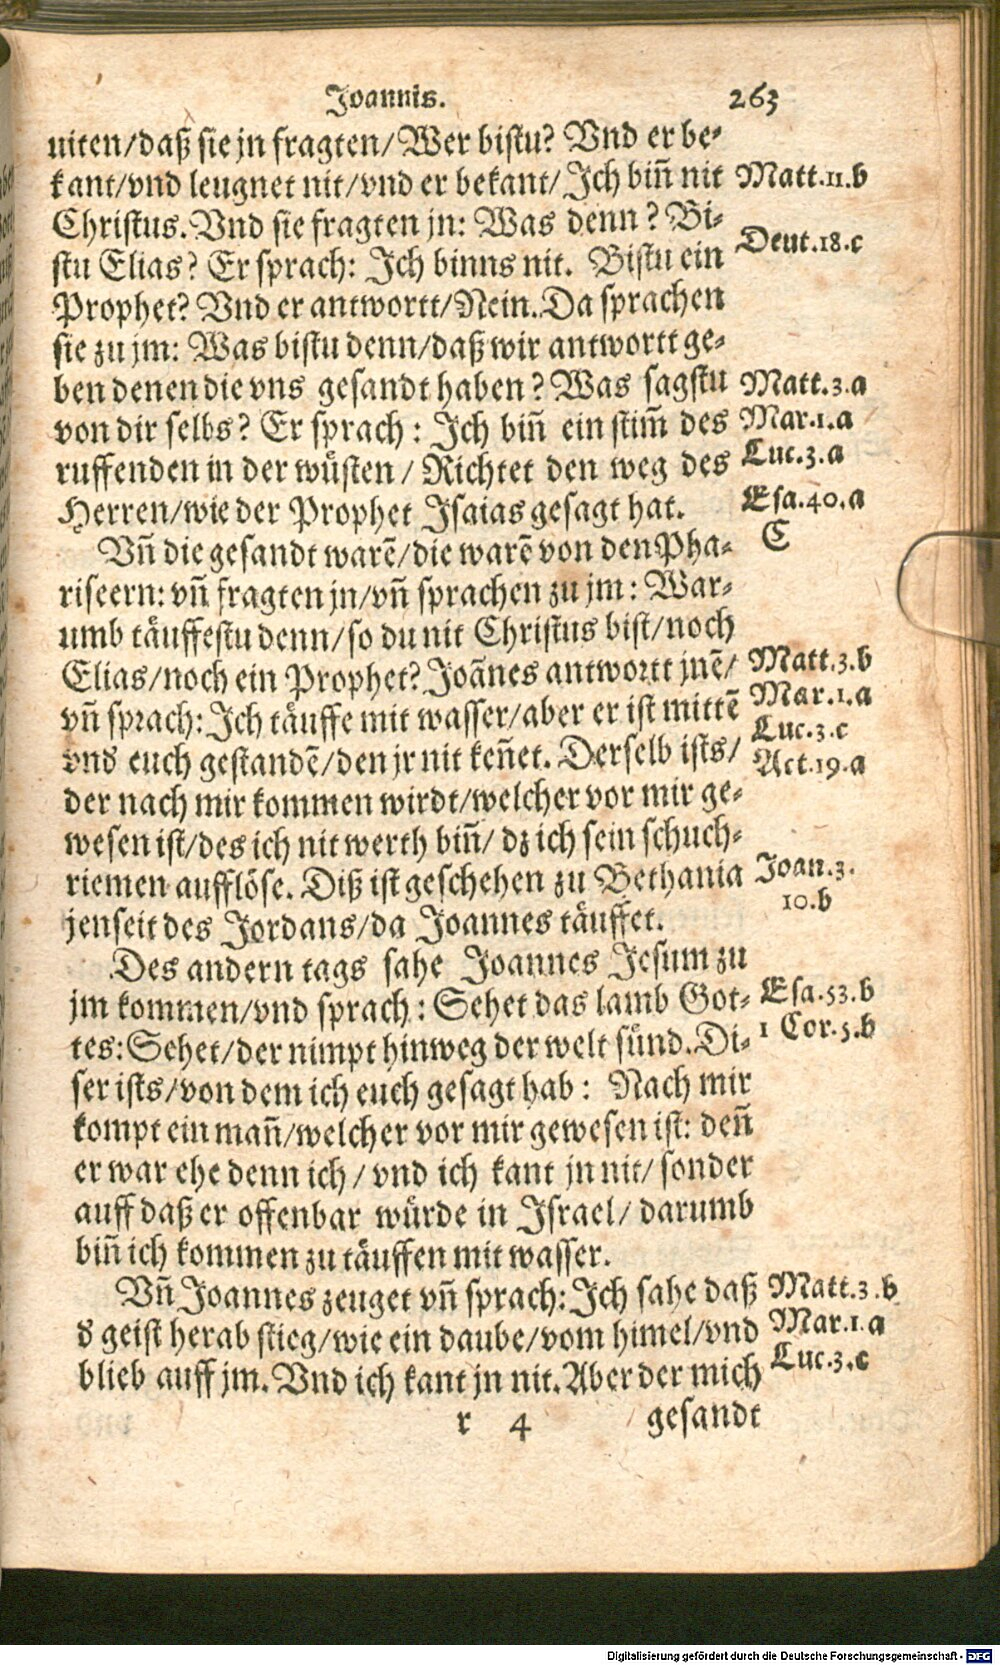 Joannis. 263
uiten/daß sie jn fragten/Wer bistu? Vnd er be-
kant/vnd leugnet nit/vnd er bekant/Ich biñ nit
Matt.11.b
Christus. Vnd sie fragten jn: Was denn? Bi-
Deut.18.c
stu Elias? Er sprach: Ich binns nit. Bistu ein
Prophet? Vnd er antwortt/Nein. Da sprachen
sie zu jm: Was bistu denn/daß wir antwortt ge-
ben denen die vns gesandt haben? Was sagstu
Matt.3.a
von dir selbs? Er sprach: Ich biñ ein stim̃ des
Mar.1.a
ruffenden in der wüsten/ Richtet den weg des
Luc.3.a
Herren/wie der Prophet Isaias gesagt hat.
Esa.40.a
C
Vñ die gesandt warẽ/die warẽ von den Pha-
riseern: vñ fragten jn/vñ sprachen zu jm: War-
umb täuffestu denn/so du nit Christus bist/noch
Elias/noch ein Prophet? Joãnes antwortt jnẽ/
Matt.3.b
vñ sprach: Ich täuffe mit wasser/aber er ist mittẽ
Mar.1.a
vnd euch gestandẽ/den jr nit keñet. Derselb ists/
Luc.3.c
Act.19.a
der nach mir kommen wirdt/welcher vor mir ge-
wesen ist/des ich nit werth biñ/ dz ich sein schuch-
riemen aufflöse. Diß ist geschehen zu Bethania
Joan.3.
10.b
jenseit des Jordans/da Joannes täuffet.
Des andern tags sahe Joannes Jesum zu
jm kommen/vnd sprach: Sehet das lamb Got-
Esa.53.b
tes: Sehet/der nimpt hinweg der welt sünd. Di-
1 Cor.5.b
ser ists/von dem ich euch gesagt hab: Nach mir
kompt ein mañ/welcher vor mir gewesen ist: deñ
er war ehe denn ich/ vnd ich kant jn nit/ sonder
auff daß er offenbar würde in Israel/ darumb
biñ ich kommen zu täuffen mit wasser.
Vñ Joannes zeuget vñ sprach: Ich sahe daß
Matt.3.b
d geist herab stieg/wie ein daube/vom himel/vnd
Mar.1.a
blieb auff jm. Vnd ich kant jn nit. Aber der mich
Luc.3.c
r 4 gesandt
Digitalisierung gefördert durch die Deutsche Forschungsgemeinschaft - DFG